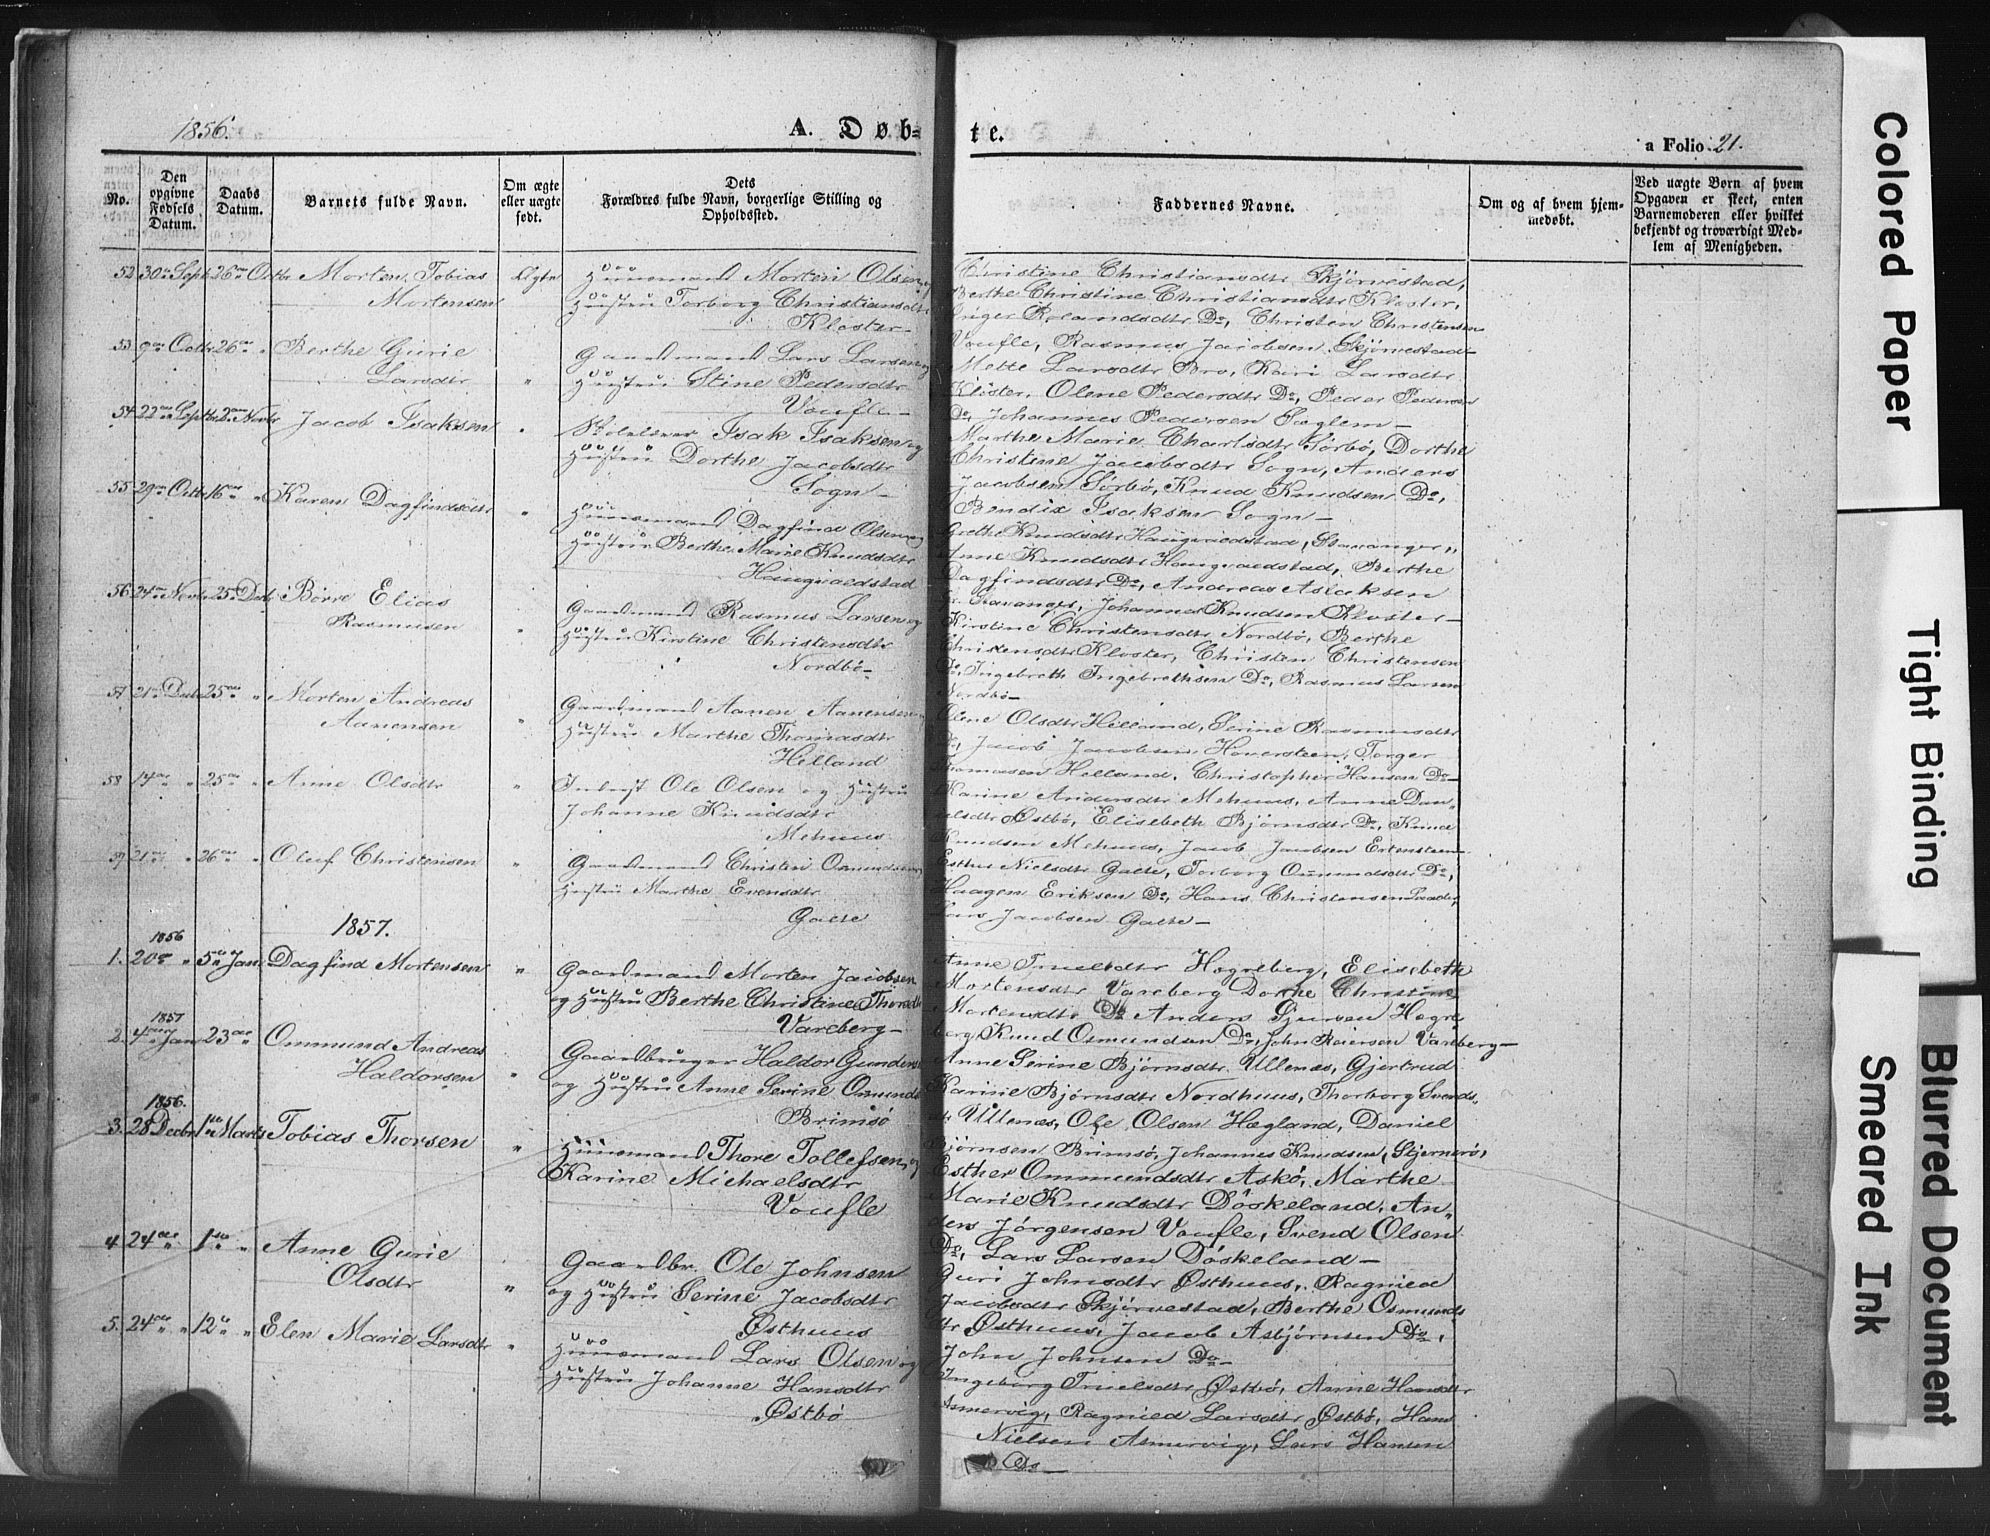 1856.
A. Døb=
te.
a Folio 21.
No.
Den opgivne Fødsels Datum.
Daabs Datum.
Barnets fulde Navn.
Om ægte eller uægte født.
Dets Forældres fulde Navn, borgerlige Stilling og Opholdssted.
Faddernes Navne.
Om og af hvem hjemmedøbt.
Ved uægte Børn af hvem Opgaven er skeet, enten Barnemoderen eller hvilket bekjendt og troværdigt Medlem af Menigheden.
52 30 Septr 26 Octbr Morten Tobias Mortensen Ægte
Huusmand Morten Olsen og
Hustru Torborg Christiansdtr
Kloster
Christine Christiansdtr Skjørvestad,
Berthe Christine Christiansdtr Kloster,
Inger Rolandsdtr Do, Christen Christensen
Voufle, Rasmus Jacobsen Skjørvestad
53 9 Octbr 26 " Berthe Gurie Larsdtr "
Gaardmand Lars Larsen og
Hustru Stine Pedersdtr
Voufle
Mette Larsdtr Bro, Kari Larsdtr
Kloster, Olene Pedersdtr Do, Peder Pedersen
Do, Johannes Pedersen Sæglem
54 22 Septbr 2 Novbr Jacob Isaksen "
Isak Isaksen og
Hustru Dorthe Jacobsdtr
Sogn
Marthe Marie Charlsdtr Sørbø, Dorthe
Christine Jacobsdtr Sogn, Anders
Jacobsen Sørbø, Knud Knudsen Do,
Bendix Isaksen Sogn
55 29 Octbr 16 " Karen Dagfindsdtr "
Huusmand Dagfind Olsen og
Hustru Berthe Marie Knudsdtr
Haugvaldstad
Grethe Knudsdtr Haugvaldstad, Stavanger,
Anne Knudsdtr Haugvaldstad, Berthe
Dagfindsdtr Do, Andreas Aslaksen
Stavanger, Johannes Knudsen Kloster
56 24 Novbr 25 Decbr Børre Elias Rasmusen "
Gaardmand Rasmus Larsen og
Hustru Kirstine Christensdtr
Nordbø
Kirstine Christensdtr Nordbø, Berthe
Christensdtr Kloster, Christen Christensen
Do, Ingebreth Ingebrethsen Do, Rasmus Larsen
Nordbø
57 21 Decbr 25 " Morten Andreas Aanensen "
Gaardmand Aanen Aanensen
Hustru Marthe Thomasdtr
Helland
Olene Olsdtr Helland, Serine Rasmusdtr
Do, Jacob Jacobsen Hoversteen, Torger
Thomasen Helland, Christopher Hansen Do
58 14 " 25 " Anne Olsdtr "
Inderst Ole Olsen og Hustru
Johanne Knudsdtr
Mehuus
Karine Andersdtr Mehuus, Anne Dan=
ielsdtr Østbø, Elisebeth Bjørnsdtr Do, Knud
Knudsen Mehuus, Jacob Jacobsen Ertensteen
59 21 " 26 " Oluf Christensen "
Gaardmand Christen Omundsen
Hustru Marthe Evensdtr
Galte
Esther Nielsdtr Galte, Torborg Ommundsdtr Do,
Haagen Eriksen Do, Hans Christensen
Lars Jacobsen Galte
1857.
1856
1. 20 " 5 Jan. Dagfind Mortensen "
Gaardmand Morten Jacobsen
og Hustru Berthe Christine Thoresdtr
Vareberg
Anne Truelsdtr Hegreberg, Elisebeth
Mortensdtr Vareberg Dorthe Christine
Mortensdtr Do Anders Hegre=
berg, Knud Osmundsen Do, John Reiersen Vareberg
1857
2. 4 Jan 23 Ommund Andreas Haldorsen "
Gaardbruger Haldor Gundersen
og Hustru Anne Serine Omunds
Brimsø
Anne Serine Bjørnsdtr Ullenæs, Gjertrud
Karine Bjørnsdtr Nordhuus, Thorborg Svends=
dtr Ullenæs, Ole Olsen Hægland, Daniel
Bjørnsen Brimsø, Johannes Knudsen, Stjernerø,
1856.
3. 28 Decbr 1 Marts Tobias Thorsen "
Huusmand Thore Tollefsen og
Karine Michaelsdtr
Voufle
Esther Ommundsdtr Askø, Marthe
Marie Knudsdtr Döskeland, An=
ders Jørgensen Voufle, Svend Olsen
Do, Lars Larsen Döskeland
4. 24 " 1 " Anne Gurie Olsdtr "
Gaardbr. Ole Johnsen
og Hustru Serine Jacobsdtr
Østhuus
Guri Johnsdtr Østhuus, Ragnied
Jacobsdtr Skjørvestad, Berthe Osmunds
dtr Østhuus, Jacob Asbjørnsen Do,
John Johnsen Do
5. 24 " 12 " Elen Marie Larsdtr "
Huusmand Lars Olsen og
Hustru Johanne Hansdtr
Østbø
Ingeborg Truelsdtr Østbø, Anne Hansdtr
Asmervig, Ragnied Larsdtr Østbø, Hans
Nielsen Asmervig, Lars Hansen
Do
Colored Paper
Tight Binding
Blurred Document
Smeared Ink